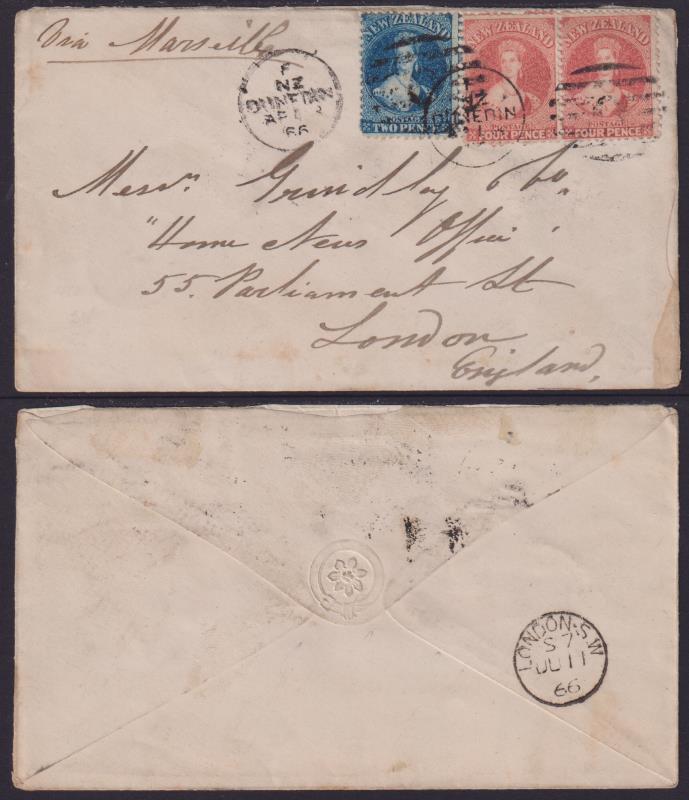 Via Marseille
F
NZ
DUNEDIN
AP
66
NEW ZEALAND
POSTAGE
TWO PENCE
NEW ZEALAND
POSTAGE
FOUR PENCE
NEW ZEALAND
POSTAGE
FOUR PENCE
NZ
DUNEDIN
Messrs Grindlay & Co
"Home News Office"
55. Parliament St
London
England,
LONDON.S.W
S 7
JU 11
66